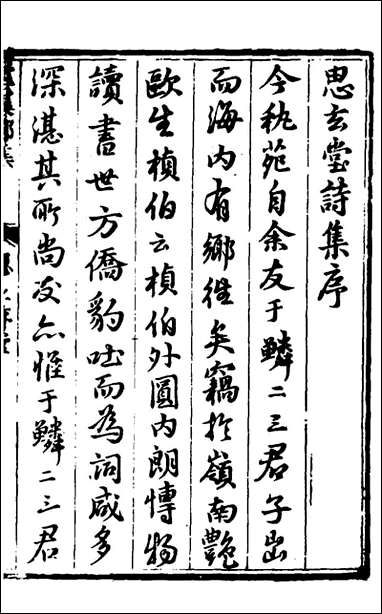 思玄堂詩集序
今秇苑自余友于鱗二三君子出
而海內有鄉徃矣竊扵嶺南艷
歐生楨伯云楨伯外圓內朗慱物
讀書世方僑豹吐而為詞咸多
深湛其所尚友亦惟于鱗二三君